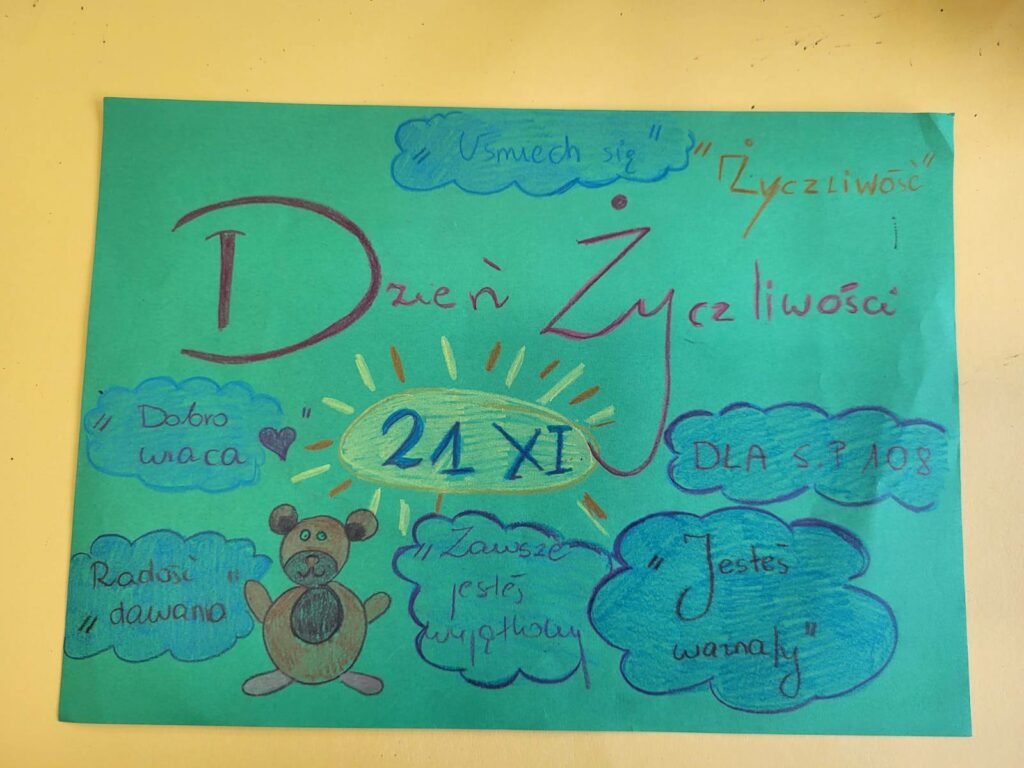 "Uśmiech się"
"Życzliwość"
i
Dzień Życzliwości
21 XI
"Dobro
wraca "
DLA S.P 108
Radość "
" dawania
"Zawsze
jesteś
wyjątkowy
"Jesteś
"